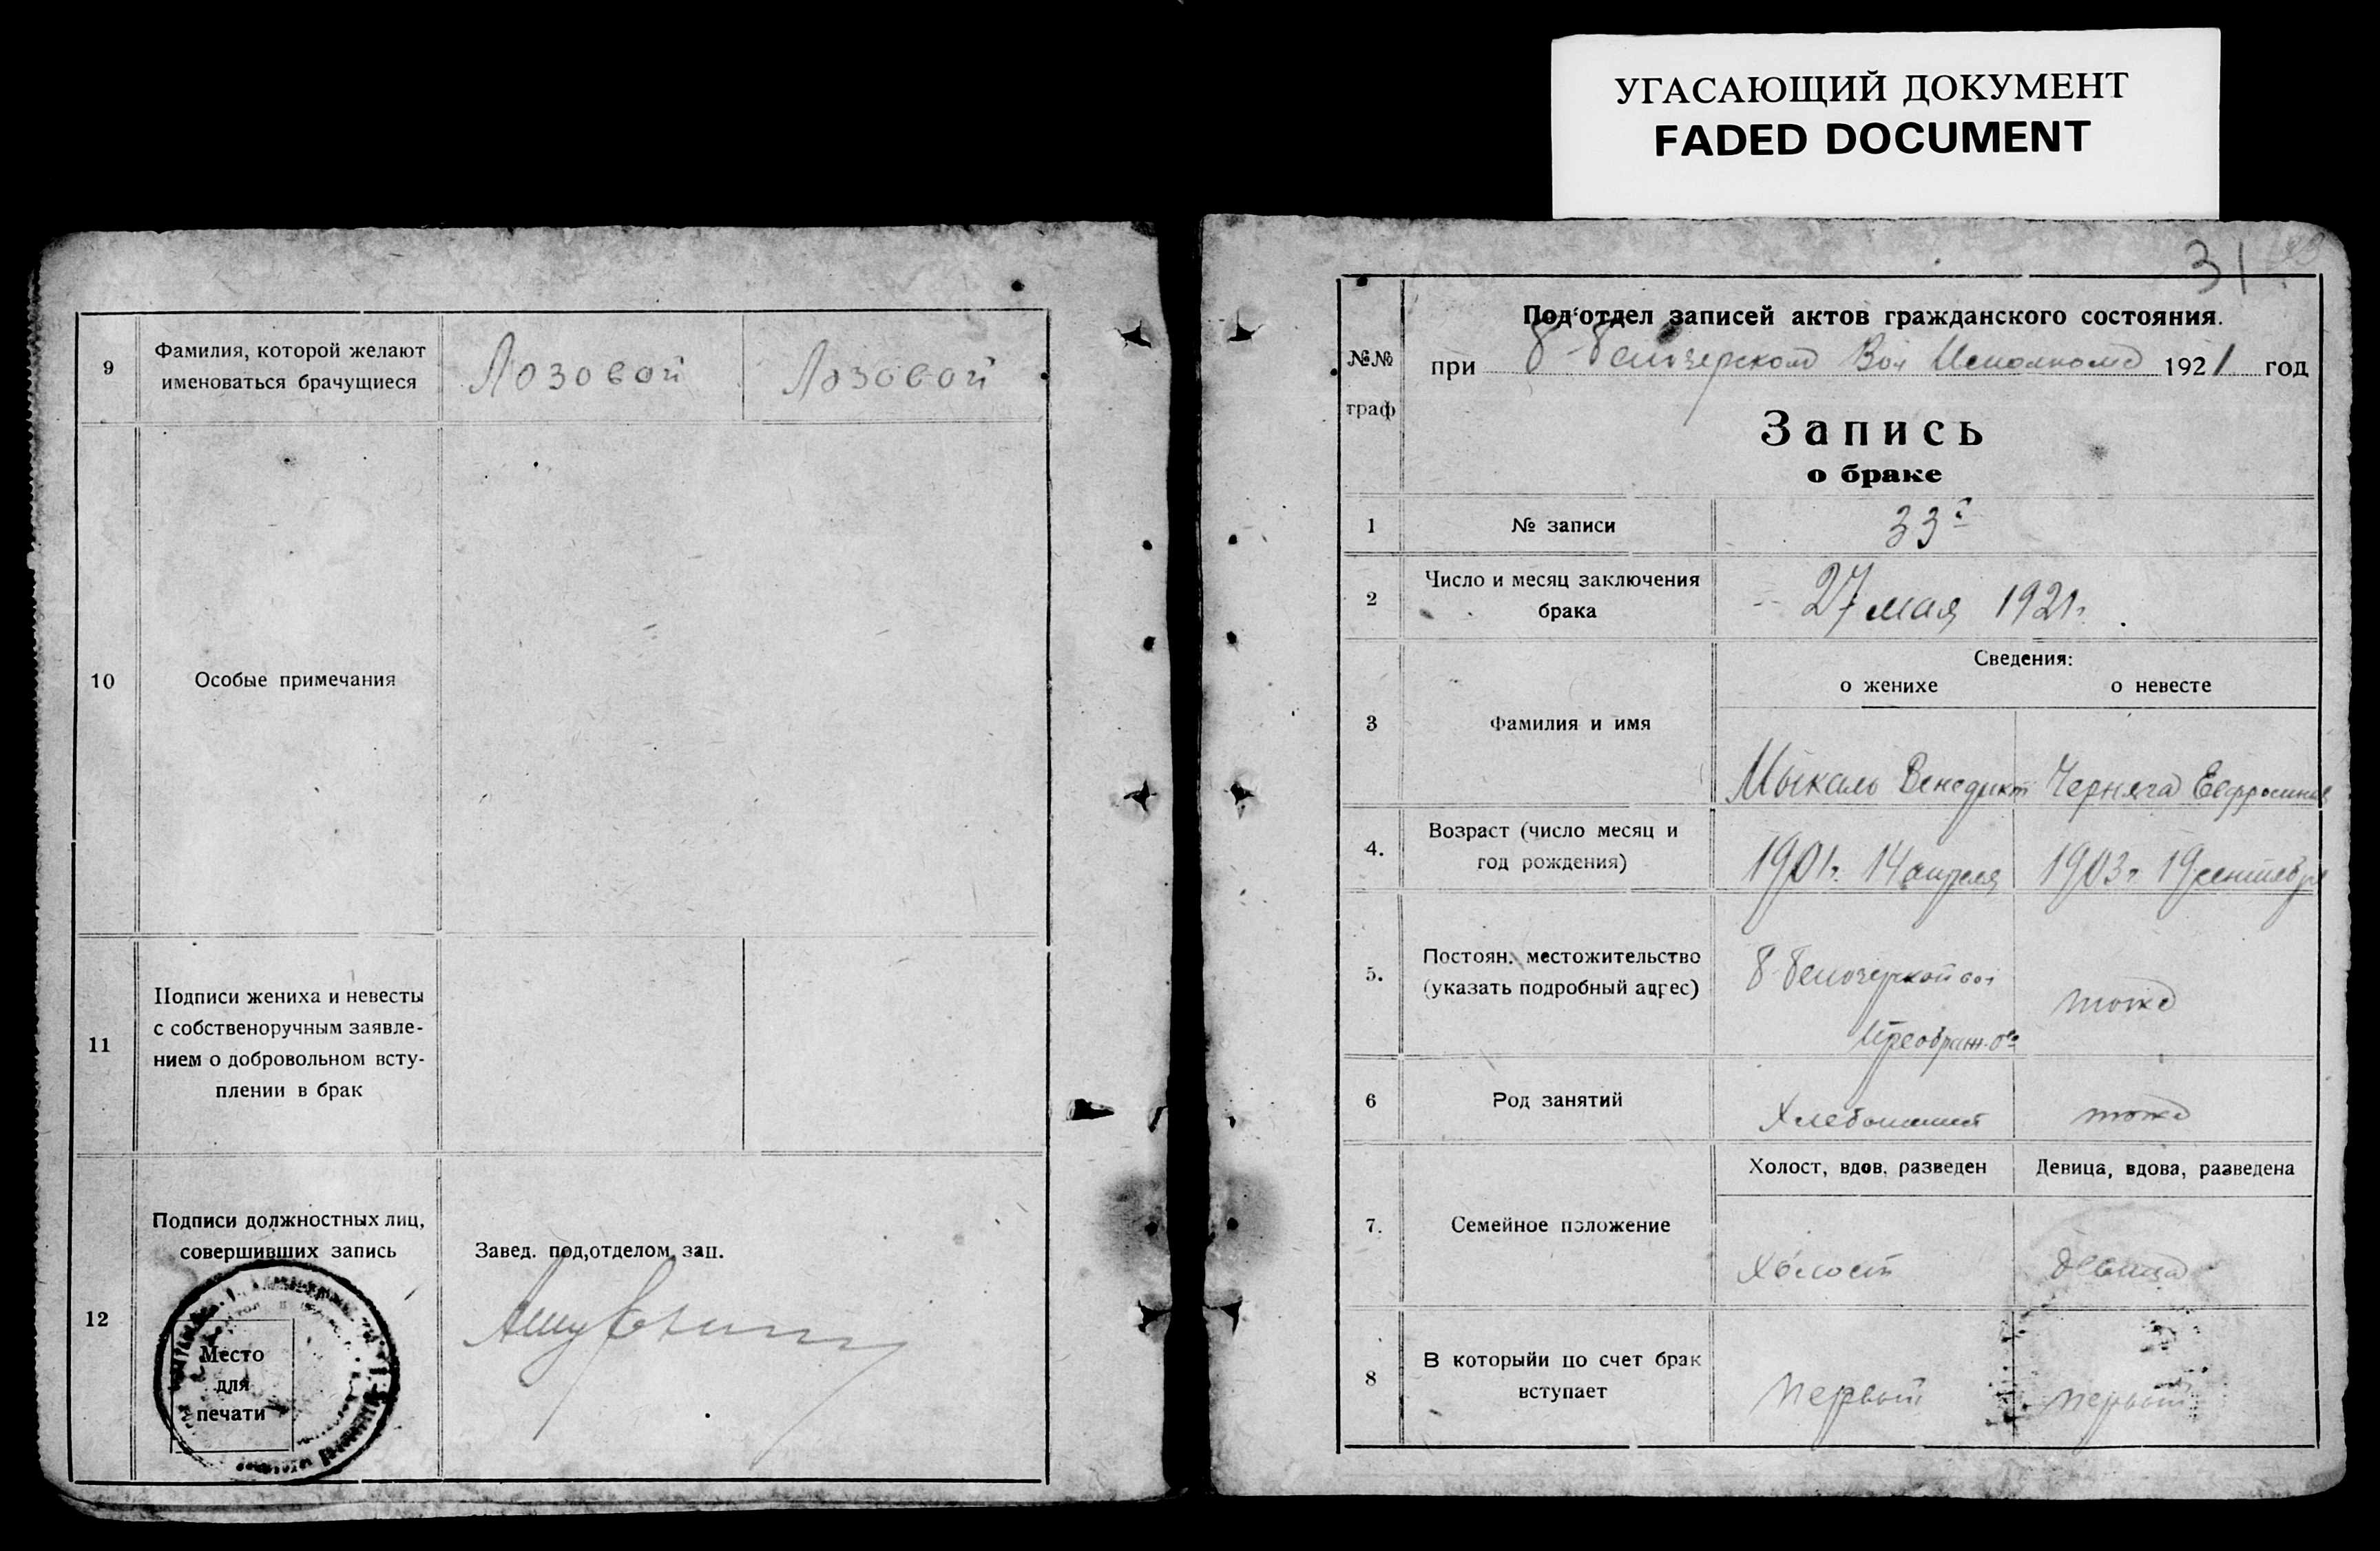 УГАСАЮЩИЙ ДОКУМЕНТ
FADED DOCUMENT
9
Фамилия, которой желают
именоваться брачущиеся
Лозовой
Лозовой
10
Особые примечания
11
Подписи жениха и невесты
с собственоручным заявле-
нием о добровольном всту-
плении в брак
12
Подписи должностных лиц,
совершивших запись
Завед. под,отделом зап.
Место
для
печати
31
№№
граф
Под‘отдел записей актов гражданского состояния.
при Б-Белозерском Вол Исполкоме 1921 год
Запись
о браке
1
№ записи
33
2
Число и месяц заключения
брака
27 мая 1921 г.
3
Фамилия и имя
Сведения:
о женихе
о невесте
Мыкало Венедикт
Черняга Евфросиния
4.
Возраст (число месяц и
год рождения)
1901 г. 14 апреля
1903 г 19 сентября
5.
Постоян. местожительство
(указать подробный адрес)
Б-Белозеркой вол
Преображ. о-ва
тоже
6
Род занятий
Хлебопашец
тоже
7.
Семейное положение
Холост, вдов. разведен
Девица, вдова, разведена
Холост
девица
8
В которыйи по счет брак
вступает
первый
первый